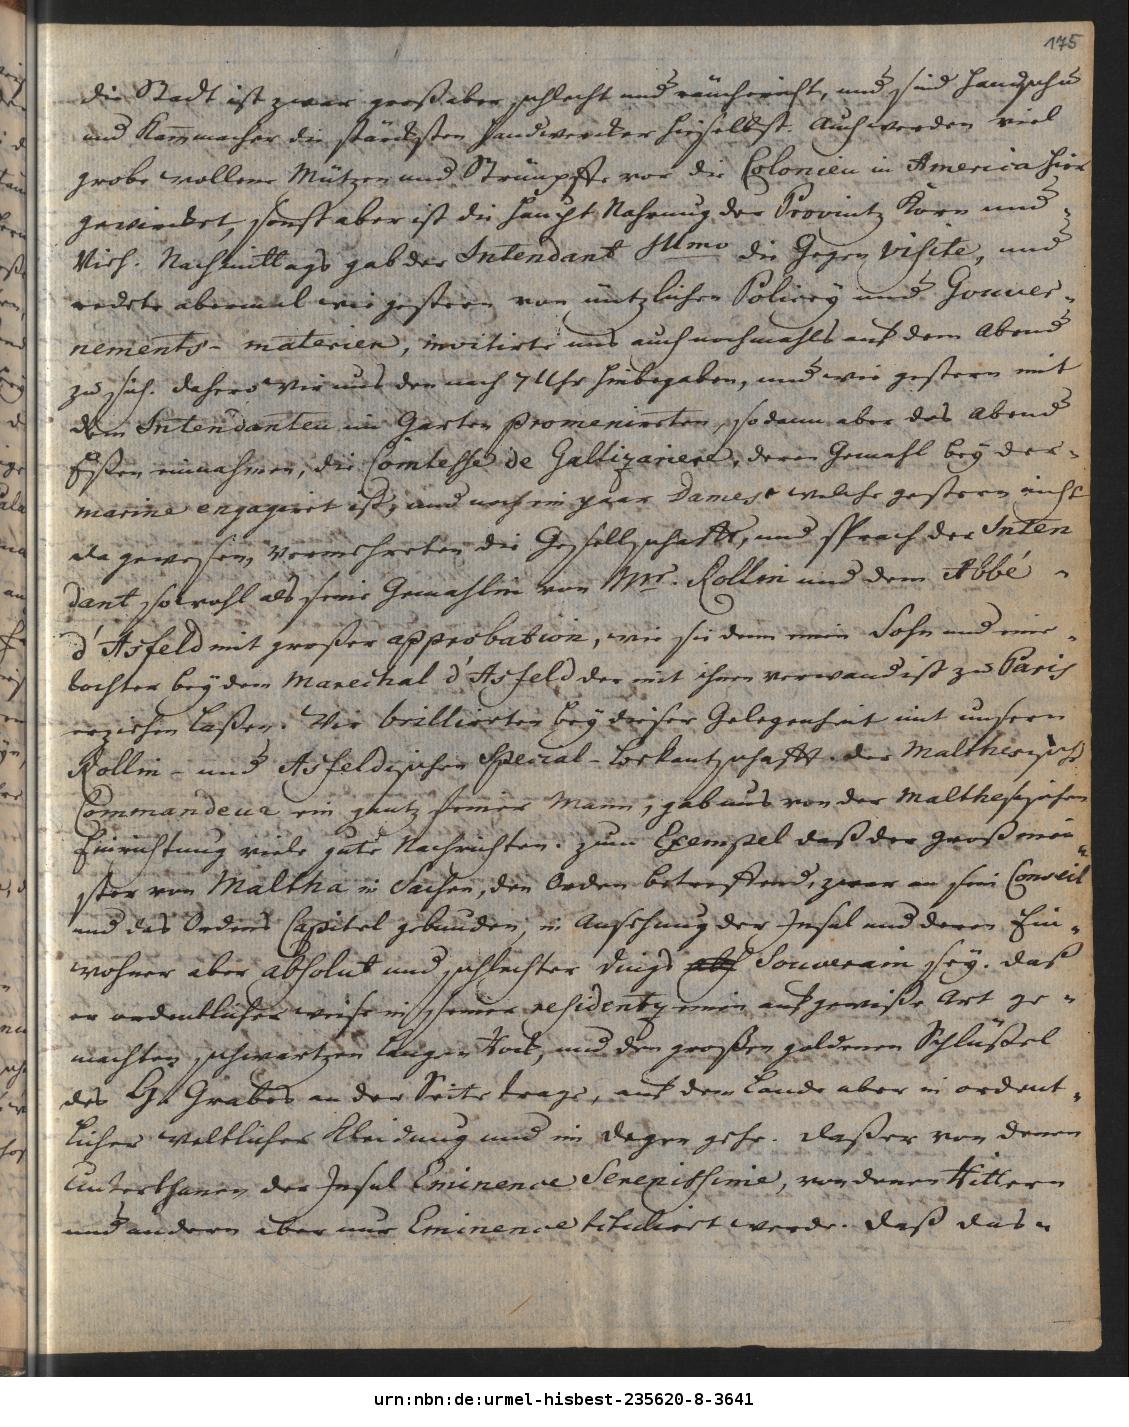 175
die Stadt ist zwar groß aber schlecht und räuchericht, und sind Handschu
und Kammacher die stärcksten Handwercker hieselbst. Auch werden viel
grobe wollene Mützen und Strümpffe vor die Colonien in America hier
gewircket, sonst aber ist die Haupt Nahrung der Provintz Korn und
Vieh. Nachmittags gab der Intendant Illmo die Gegen visite, und
redete abermal wie gestern von nützlichen Policey und Gouver-
nements- materien, invitirte uns auch nochmahls auf den Abend
zu sich. dahero wir uns den nach 7 Uhr hinbegaben, und wie gestern mit
dem Intendanten im Garten promenirten, sodann aber das Abend
Eßen einnahmen, die Comtesse de Gallizaniere, deren Gemahl bey der-
marine engagirt ist, und noch ein paar Dames welche gestern nicht
da gewesen, vermehrten die Gesellschafft, und sprach der Inten
dant sowohl als seine Gemahlin von Mr. Rollin und dem Abbé -
d'Asfeld mit großer approbation, wie sie denn einen Sohn und eine-
tochter bey dem Marechal d'Asfeld der mit ihnen verwand ist zu Paris
erziehen laßen. Wir brillierten bey dieser Gelegenheit mit unsern
Rollin- und Asfeldischen Special-Bekantschafft. der Malthesische
Commandeur ein gantz feiner Mann, gab uns von der Malthesischen
Einrichtung viele gute Nachrichten. zum Exempel daß der großmei
ster von Maltha in Sachen, den Orden betreffend, zwar an sein Conseil
und das Ordens Capitel gebunden, in Ansehung der Insul und deren Ein-
wohner aber absolut und schlechter dings Souverain sey. daß
er ordentlicher weise in seiner residentz einen auf gewiße Art ge-
machten schwartzen langen Rock, und den großen goldenen Schlüßel
des H. Grabes an der Seite trage, auf dem Lande aber in ordent-
licher weltlicher Kleidung und im degen gehe. daß er von denen
Unterthanen der Insul Eminence Serenissime, von denen Rittern
und andern aber nur Eminence tituliert werde. daß das-
urn:nbn:de:urmel-hisbest-235620-8-3641